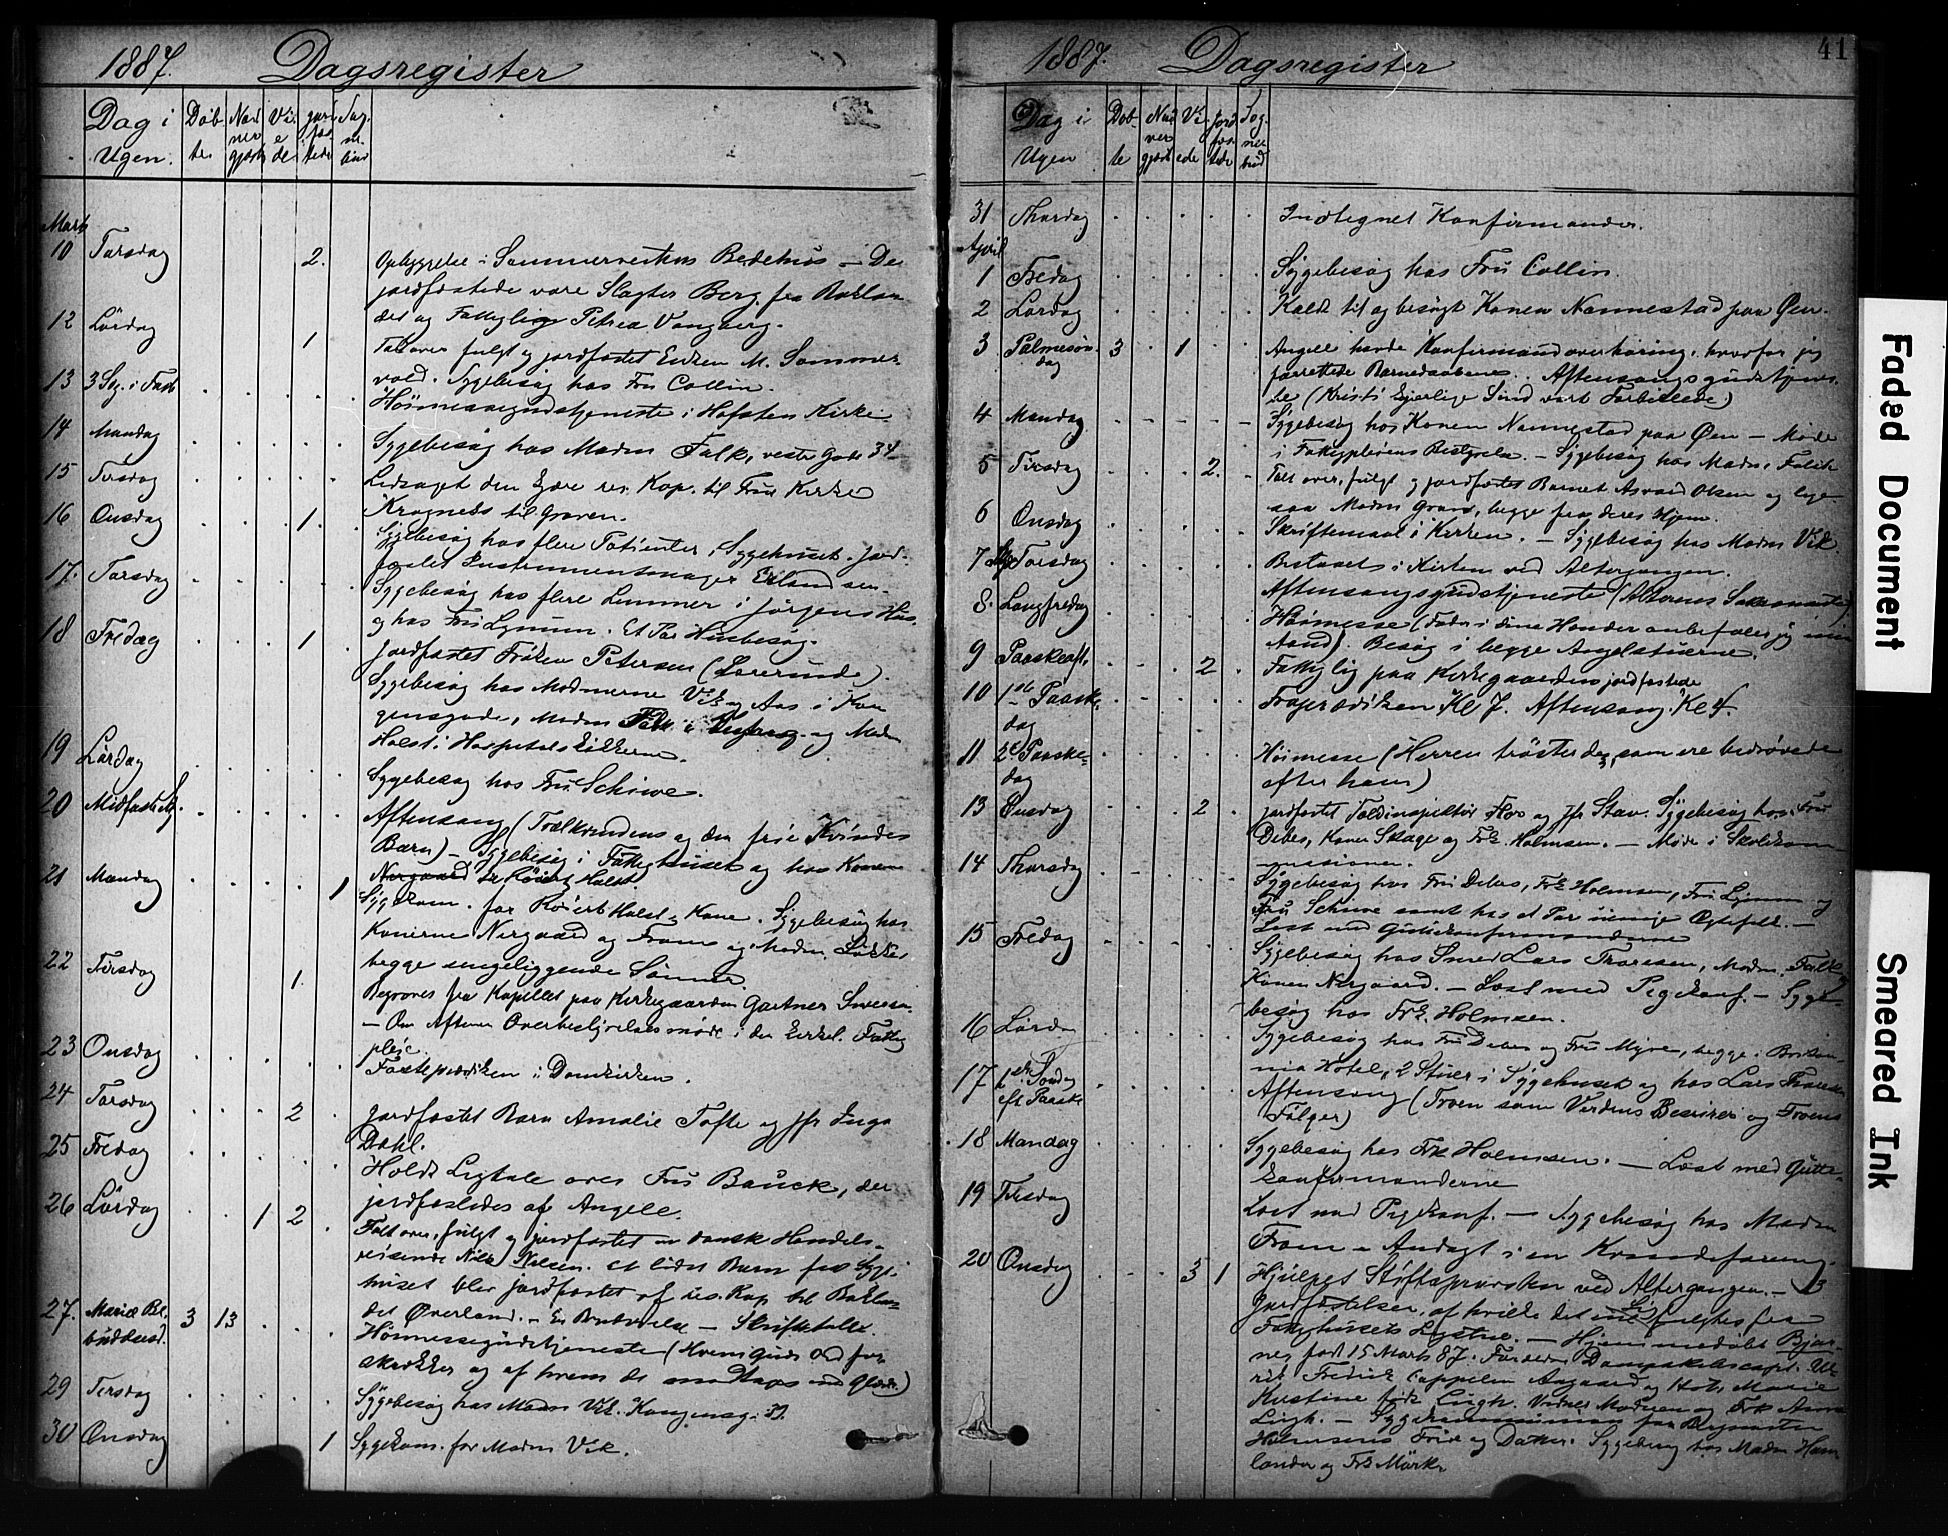 1887. Dagsregister
Dag i Ugen. Döb- te Nad ver gjæst Vi- e de jor fæs tede Sog- ne bud
Marts
10 Torsdag 2. Opbyggelse i Sommerveitens Bedehus – De
jordfæstede vare Slagter Berg fra Baklan
det og Fattiglig Petrea Vangberg.
12 Lördag 1 Talt over fulgt og jordfæstet Enken M. Sommer
vold. Sygebesög hos Fru Collin.
13 3 Sg. i Fast Höimessegudstjeneste i Hofstens Kirke
14 Mandag Sygebesög hos Madm Falk, vestre Gade 34
15 Tirsdag Ledsaget den kjære res. Kap. til Frue Kirke
Krogness til Graven.
16 Onsdag 1. Sygebesög hos flere Patienter i Sygehuset. Jord-
fæstet Instrumentmager Erlandsen.
17. Torsdag Sygebesög hos flere Lemmer i Jörgens Hus
og hos Fru Lysum. Et Par Husbesög.
18 Fredag 1 Jordfæstet Fröken Petersen (Lærerinde).
Sygebesög hos Madmerne Vik og Aas i Kon
gensgade, Madm Falk i og Madm
Holst i Hospitalslökkerne.
19 Lördag Sygebesög hos Fru Schiwe.
20 Midfaste Sg. Aftensang (Trælkvindens og den frie Kvindes
Barn) – Sygebesög i Fattighuset og hos Konen
Nergaard
21 Mandag 1 Sygekom. for Röiert Holst og Kone. Sygebesög hos
Konerne Nergaard og Fram og Madm Lökke,
begge sengeliggende Sönner.
22 Tirsdag 1. Begraves fra Kapellet paa Kirkegaarden Gartner
– Om Aftenen Overbestyrelsesmöde i den Fattig
pleie.
23 Onsdag Fasteprædiken i Domkirken.
24 Torsdag 2 Jordfæstet Barn Amalie Tofte og Jfr Inga
Dahl.
25 Fredag Holdt Ligtale over Fru Bauck, der
jordfæstedes af Angell.
26 Lördag 1 2 Talt over, fulgt og jordfæstet en dansk Handels-
reisende Nils Nielsen. Et lidet Barn fra Syge-
huset blev jordfæstet af res. Kap. til Baklan-
det Överland. – En Brudevielse – Skriftetale.
27. Mariæ Be- budelsesd. 3 13 Höimessegudstjeneste (Hvem Guds Ord for-
skrækker og af hvem det modtages med Glæde)
29 Tirsdag Sygebesög hos Madm Vik. Kongensg. 33.
30 Onsdag 1 Sygekom. for Madm Vik.
1887. Dagsregister
41
Dag i Ugen Döb- te Nad ver gjæst Vi- ede Jord fæs tede Sog nee bud
31 Thorsdag Indtegnet Konfirmander.
April
1 Fredag Sygebesög hos Fru Collin.
2 Lördag Kaldt til og besögt Konen Nannestad paa Öen.
3 Palmesön- dag 3 1 Angell havde Konfirmandoverhöring, hvorfor jeg
forrettede Barnedaabene. Aftensangsgudstjenes-
te (Kristi kjærlige Sind vort Forbillede)
4 Mandag Sygebesög hos Konen Nannestad paa Öen – Möde
i Fattigpleiens Bestyrelse. – Sygebesög hos Madm. Falck
5 Tirsdag 2. Talt over, fulgt og jordfæstet Barnet Asvard Olsen og lige-
saa Madm Gram, begge fra deres Hjem.
6 Onsdag Skriftemaal i Kirken. – Sygebesög hos Madm Vik.
7 Torsdag Bistaaet i Kirken ved Altergangen.
Aftensangsgudstjeneste (Alterens Sakramente)
8. Langfredag Höimesse (Fader i dine Hænder anbefaler jeg min
Aand). Besög i begge Angelstuerne.
9 Paaskeaft. 2 Fattiglig paa Kirkegaarden jordfæstede
10 1ste Paaske- dag Froprædiken Kl 7. Aftensang Kl 4.
11 2. Paaske- dag Höimesse (Herren tröster dem, som ere bedrövede
efter ham)
13 Onsdag 2 Jordfæstet Toldinspektör Flor og Jfr Stav. Sygebesög hos Fru
Debes, Konen Skage og Frk. Holmsen. – Möde i Skolekom-
missionen.
14 Thorsdag Sygebesög hos Fru Debes, Frk Holmsen, Fru Lysum og
Fru Schiwe samt hos et Par uenige Ægtefolk. –
Læst med Guttekonfirmanderne
15 Fredag Sygebesög hos Smed Lars Thoresen, Madm. Falk og
Konen Nergaard. – Læst med Pigekonf. – Syge-
besög hos Frk. Holmsen.
16 Lörda Sygebesög hos Fru Debes og Fru Myre, begge i Britan-
nia Hotel, 2 Stuer i Sygehuset og hos Lars Thoresen
17 1ste Söndag eft Paaske Aftensang (Troen som Verdens Beseirer og Troens
Fölger)
18 Mandag Sygebesög hos Frk Holmsen. – Læst med Gutte-
konfirmanderne
19 Tirsdag Læst med Pigekonf. – Sygebesög hos Madm
Fram – Andagt i en Kvindeforening.
20 Onsdag 3 1 Hjulpet Stiftsprovsten ved Altergangen. – 3
Jordfæstelser, af hvilke det ene Lig fulgtes fra
Fattighusets Ligstue. – Hjemmedöbt Bjar-
ne, födt 15 Marts 87. Forældre Dampskibscapt. Ul-
rik Fredrik Cappelen Aagaard og Hst. Marie
Kristine födt Lügh. Vidner Moderen og Frk Anna
Lügh. – Sygekommunion for
Holmsens Frue og Datter. Sygebesög hos Madm Ham-
lander og Frk Mörkr
Faded Document
Smeared Ink